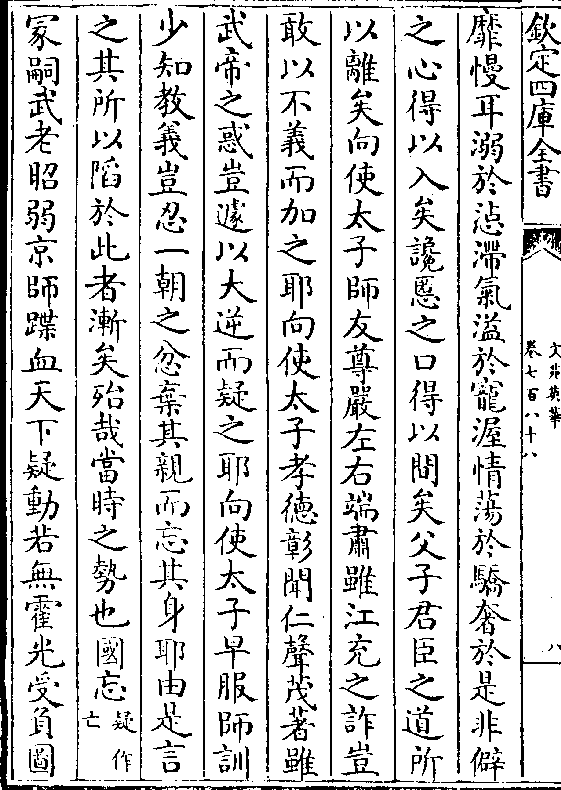 欽定四庫全書
文苑英華
卷七百八十八
八
靡慢耳溺於惉滯氣溢於寵渥情蕩於驕奢於是非僻
之心得以入矣讒慝之口得以間矣父子君臣之道所
以離矣向使太子師友尊嚴左右端肅雖江充之詐豈
敢以不義而加之耶向使太子孝德彰聞仁聲茂著雖
武帝之惑豈遽以大逆而疑之耶向使太子早服師訓
少知教義豈忍一朝之忿棄其親而忘其身耶由是言
之其所以陷於此者漸矣殆哉當時之勢也國忘疑作亡
冢嗣武老昭弱京師蹀血天下疑動若無霍光受負圖